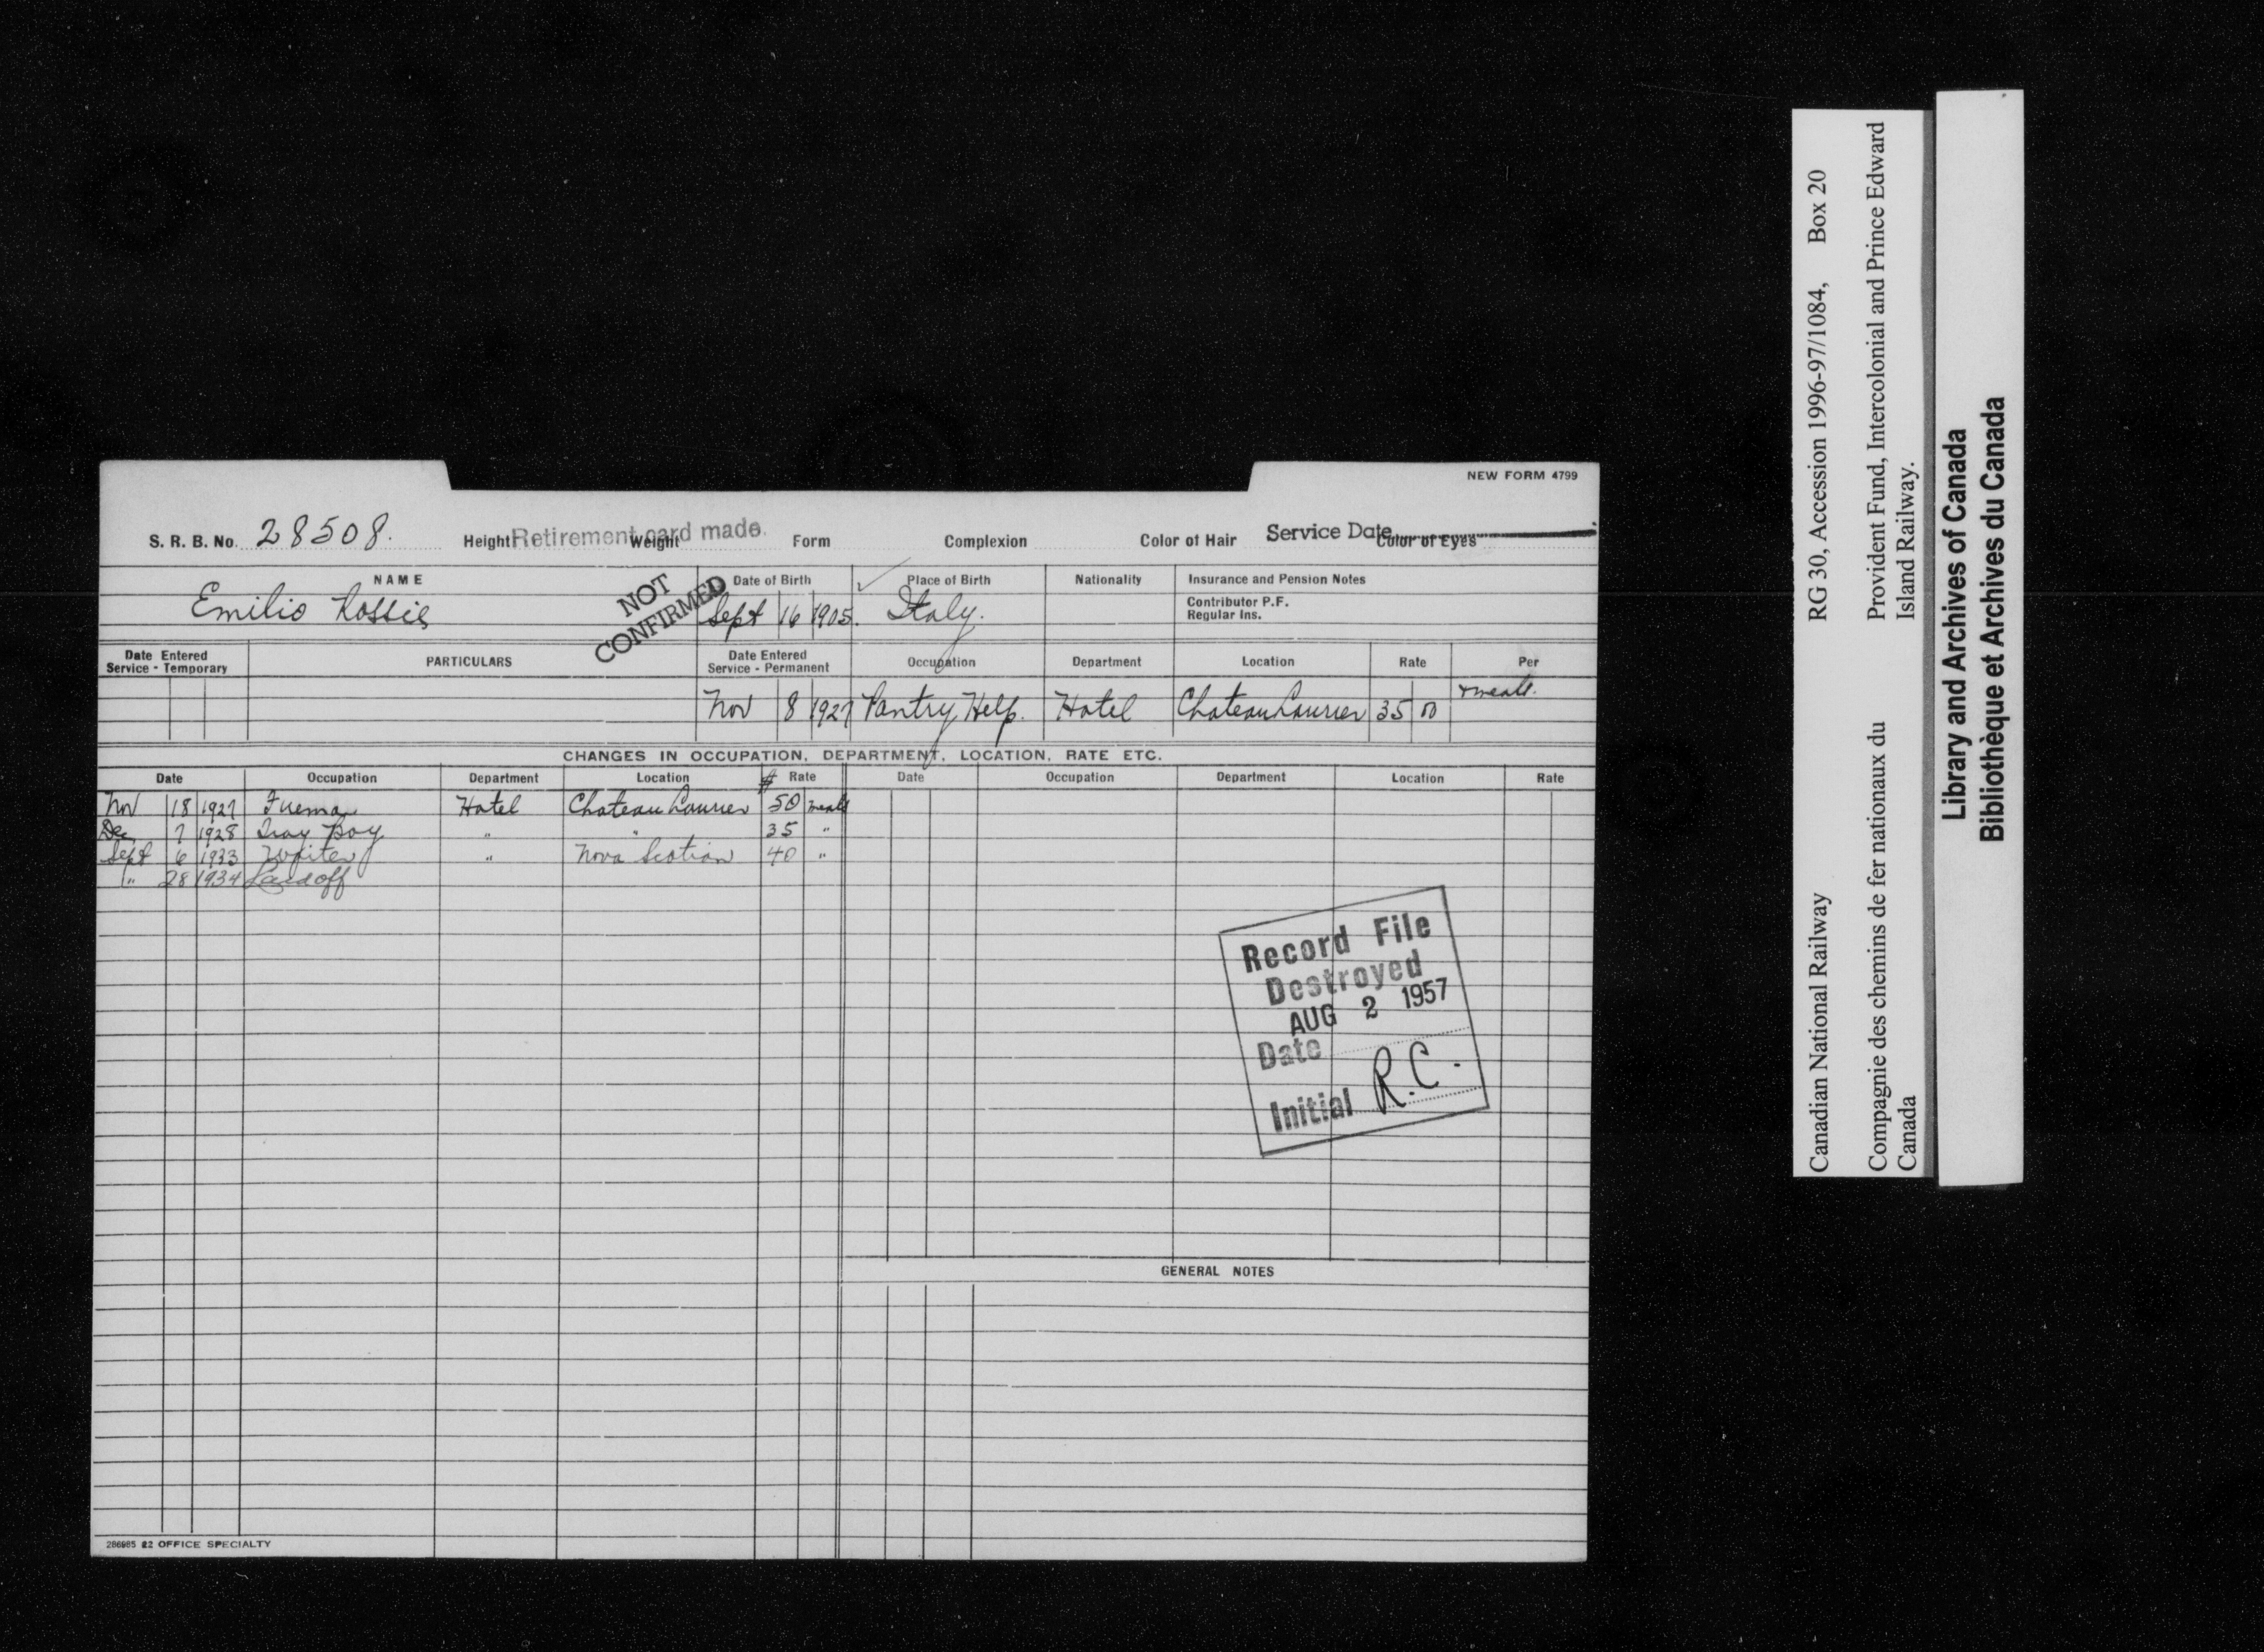 NEW FORM 4799
S. R. B. No. 28508. Height Retirement card made. Weight Form Complexion Color of Hair Service Date Color of Eyes
NAME Date of Birth Place of Birth Nationality Insurance and Pension Notes
NOT CONFIRMED
Contributor P.F.
Regular Ins.
Emilio Sept 16 1905. Italy.
Date Entered Service - Temporary PARTICULARS Date Entered Service - Permanent Occupation Department Location Rate Per
Nov 8 1927 Pantry Help. Hotel Chateau Laurier 35 00 + meals.
CHANGES IN OCCUPATION, DEPARTMENT, LOCATION, RATE ETC.
Date Occupation Department Location # Rate Date Occupation Department Location Rate
Nov 18 1927 Fireman Hotel Chateau Laurier 50 meals
Dec 7 1928 Tray Boy " " 35 "
Sept 6 1933 Waiter " Nova Scotian 40 "
" 28 1934 Laid off
Record File
Destroyed
AUG 2 1957
Date
Initial R.C.
GENERAL NOTES
286985 22 OFFICE SPECIALTY
Canadian National Railway RG 30, Accession 1996-97/1084, Box 20
Compagnie des chemins de fer nationaux du Provident Fund, Intercolonial and Prince Edward
Canada Island Railway.
Library and Archives of Canada
Bibliothèque et Archives du Canada